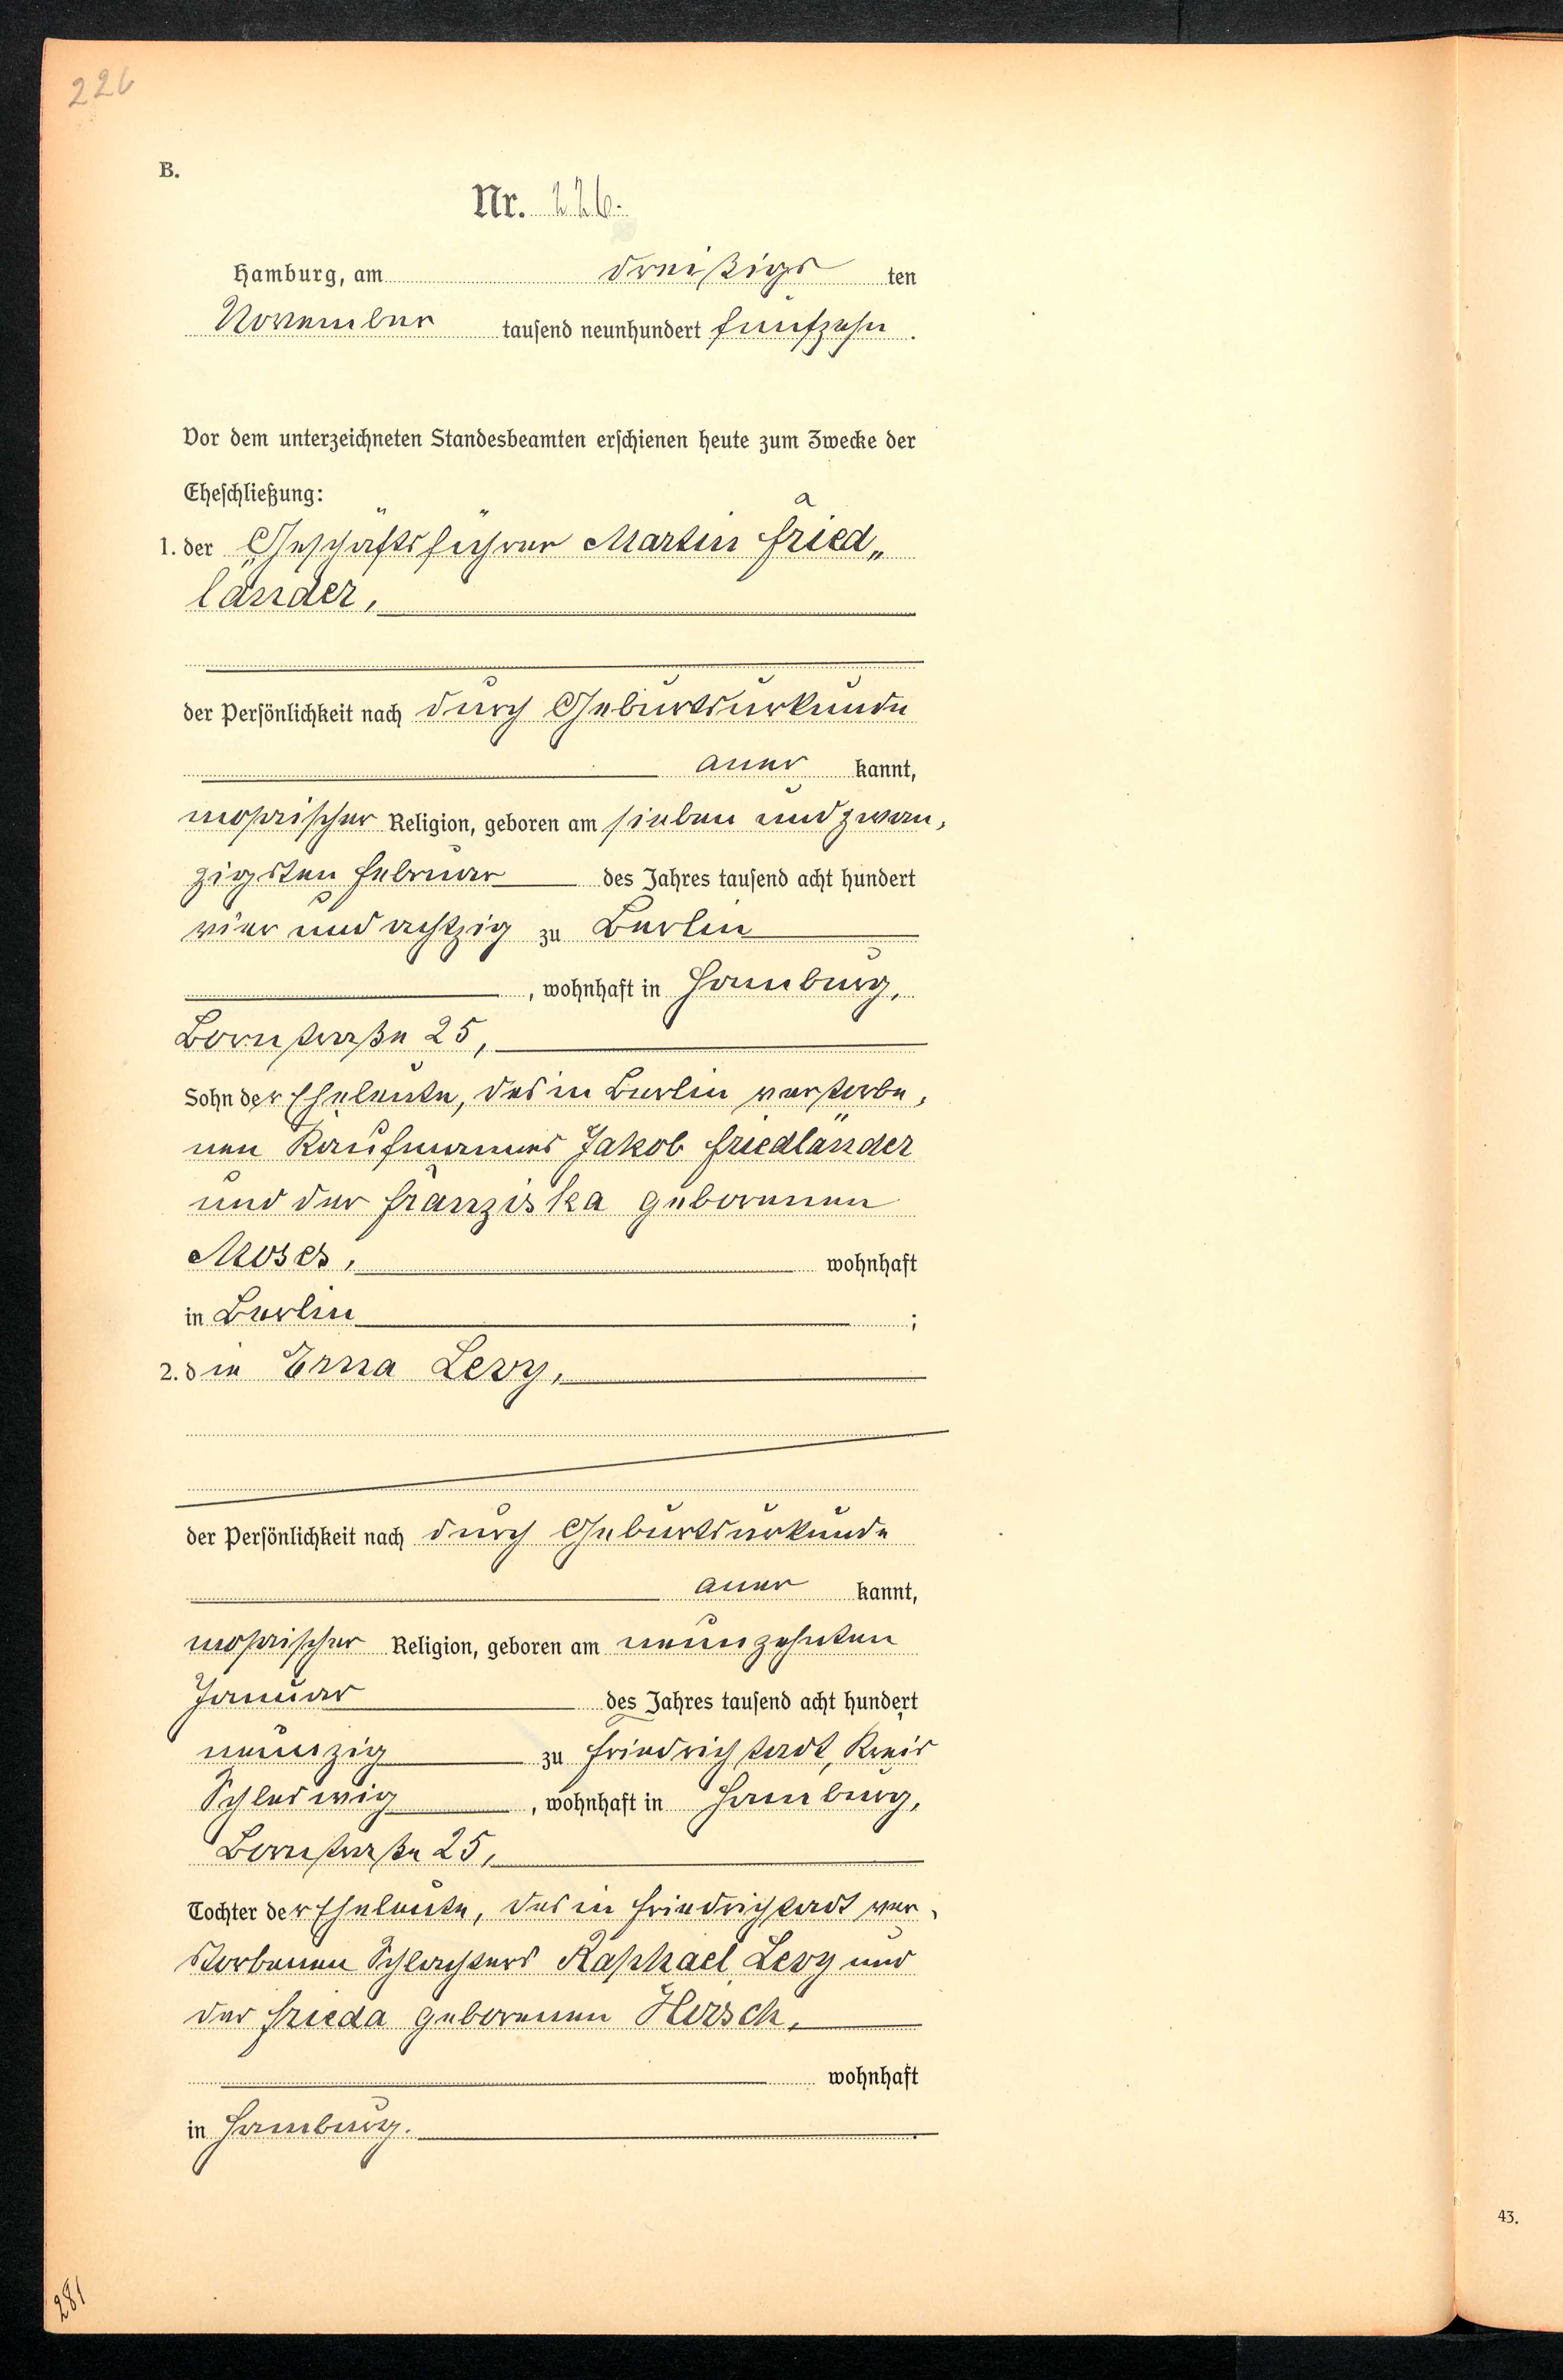 226
B.
Nr. 226.
Hamburg, am dreißigsten
November tausend neunhundert fünfzehn.
Vor dem unterzeichneten Standesbeamten erschienen heute zum Zwecke der
Eheschließung:
a
1. der Geschäftsführer Martin Fried„
„länder,
der Persönlichkeit nach durch Geburtsurkunde
aner kannt,
mosaischer Religion, geboren am sieben und zwan„
zigsten Februar des Jahres tausend acht hundert
vier und achtzig zu Berlin
, wohnhaft in Hamburg,
Bornstraße 25,
Sohn der Eheleute, des in Berlin verstorbe„
nen Kaufmannes Jakob Friedländer
und der Franziska geborenen
Moses, wohnhaft
in Berlin ;
2. die Erna Levy,
der Persönlichkeit nach durch Geburtsurkunde
aner kannt,
mosaischer Religion, geboren am neunzehnten
Januar des Jahres tausend acht hundert
neunzig zu Friedrichstadt, Kreis
Schleswig, wohnhaft in Hamburg,
Bornstraße 25,
Tochter der Eheleute, des in Friedrichstadt ver„
storbenen Schlachters Raphael Levy und
der Frieda geborenen Hirsch,
wohnhaft
in Hamburg.
43.
281